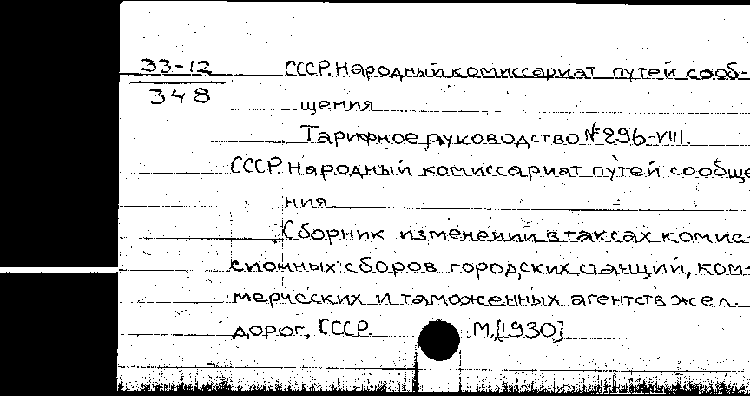 33-12
348
СССР. Народный комиссариат путей сооб-
щения
Тарифное руководство № 296-VIII.
СССР. Народный комиссариат путей сообще
ния
Сборник изменений в таксах комис-
сионных сборов городских станций, ком-
мерческих и таможенных агентств жел.
дорог, СССР. М,[1930]